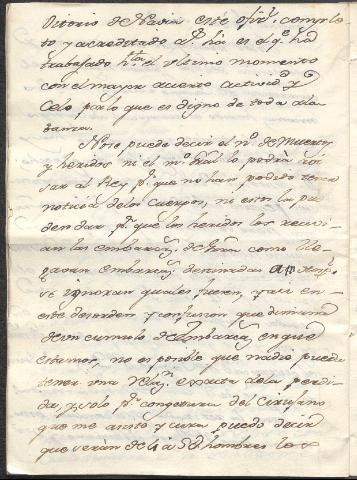 Vitorio de Navia este ofizl. comple
to y acreditado qe. hà es el qe. ha
trabajado hta. el ultimo momento
con el mayor acierto actividd. y
Celo por lo que es digno de toda ala
banza.
Nose puede decir el no. de Muertos
y heridos ni el mo. Gral lo podrà
sar al Rey pr. que no han podido tener
noticia delos Cuerpos, ni estos la pu
den dar pr. que los heridos los recivi
an las embarcns. de Gra. como lle
gavan embarcns. destinadas
se ignoran quales fueren, y asi en
este desorden y confusion que dimana
de un cumulo de Embarcns. en que
estamos, no es posible que nadie pueda
tener una Relazn. exacta dela perdi
da, y solo pr. congetura del Cirujano
que me asiste y cura puedo decir
que seràn de 4 à 5 hombres los